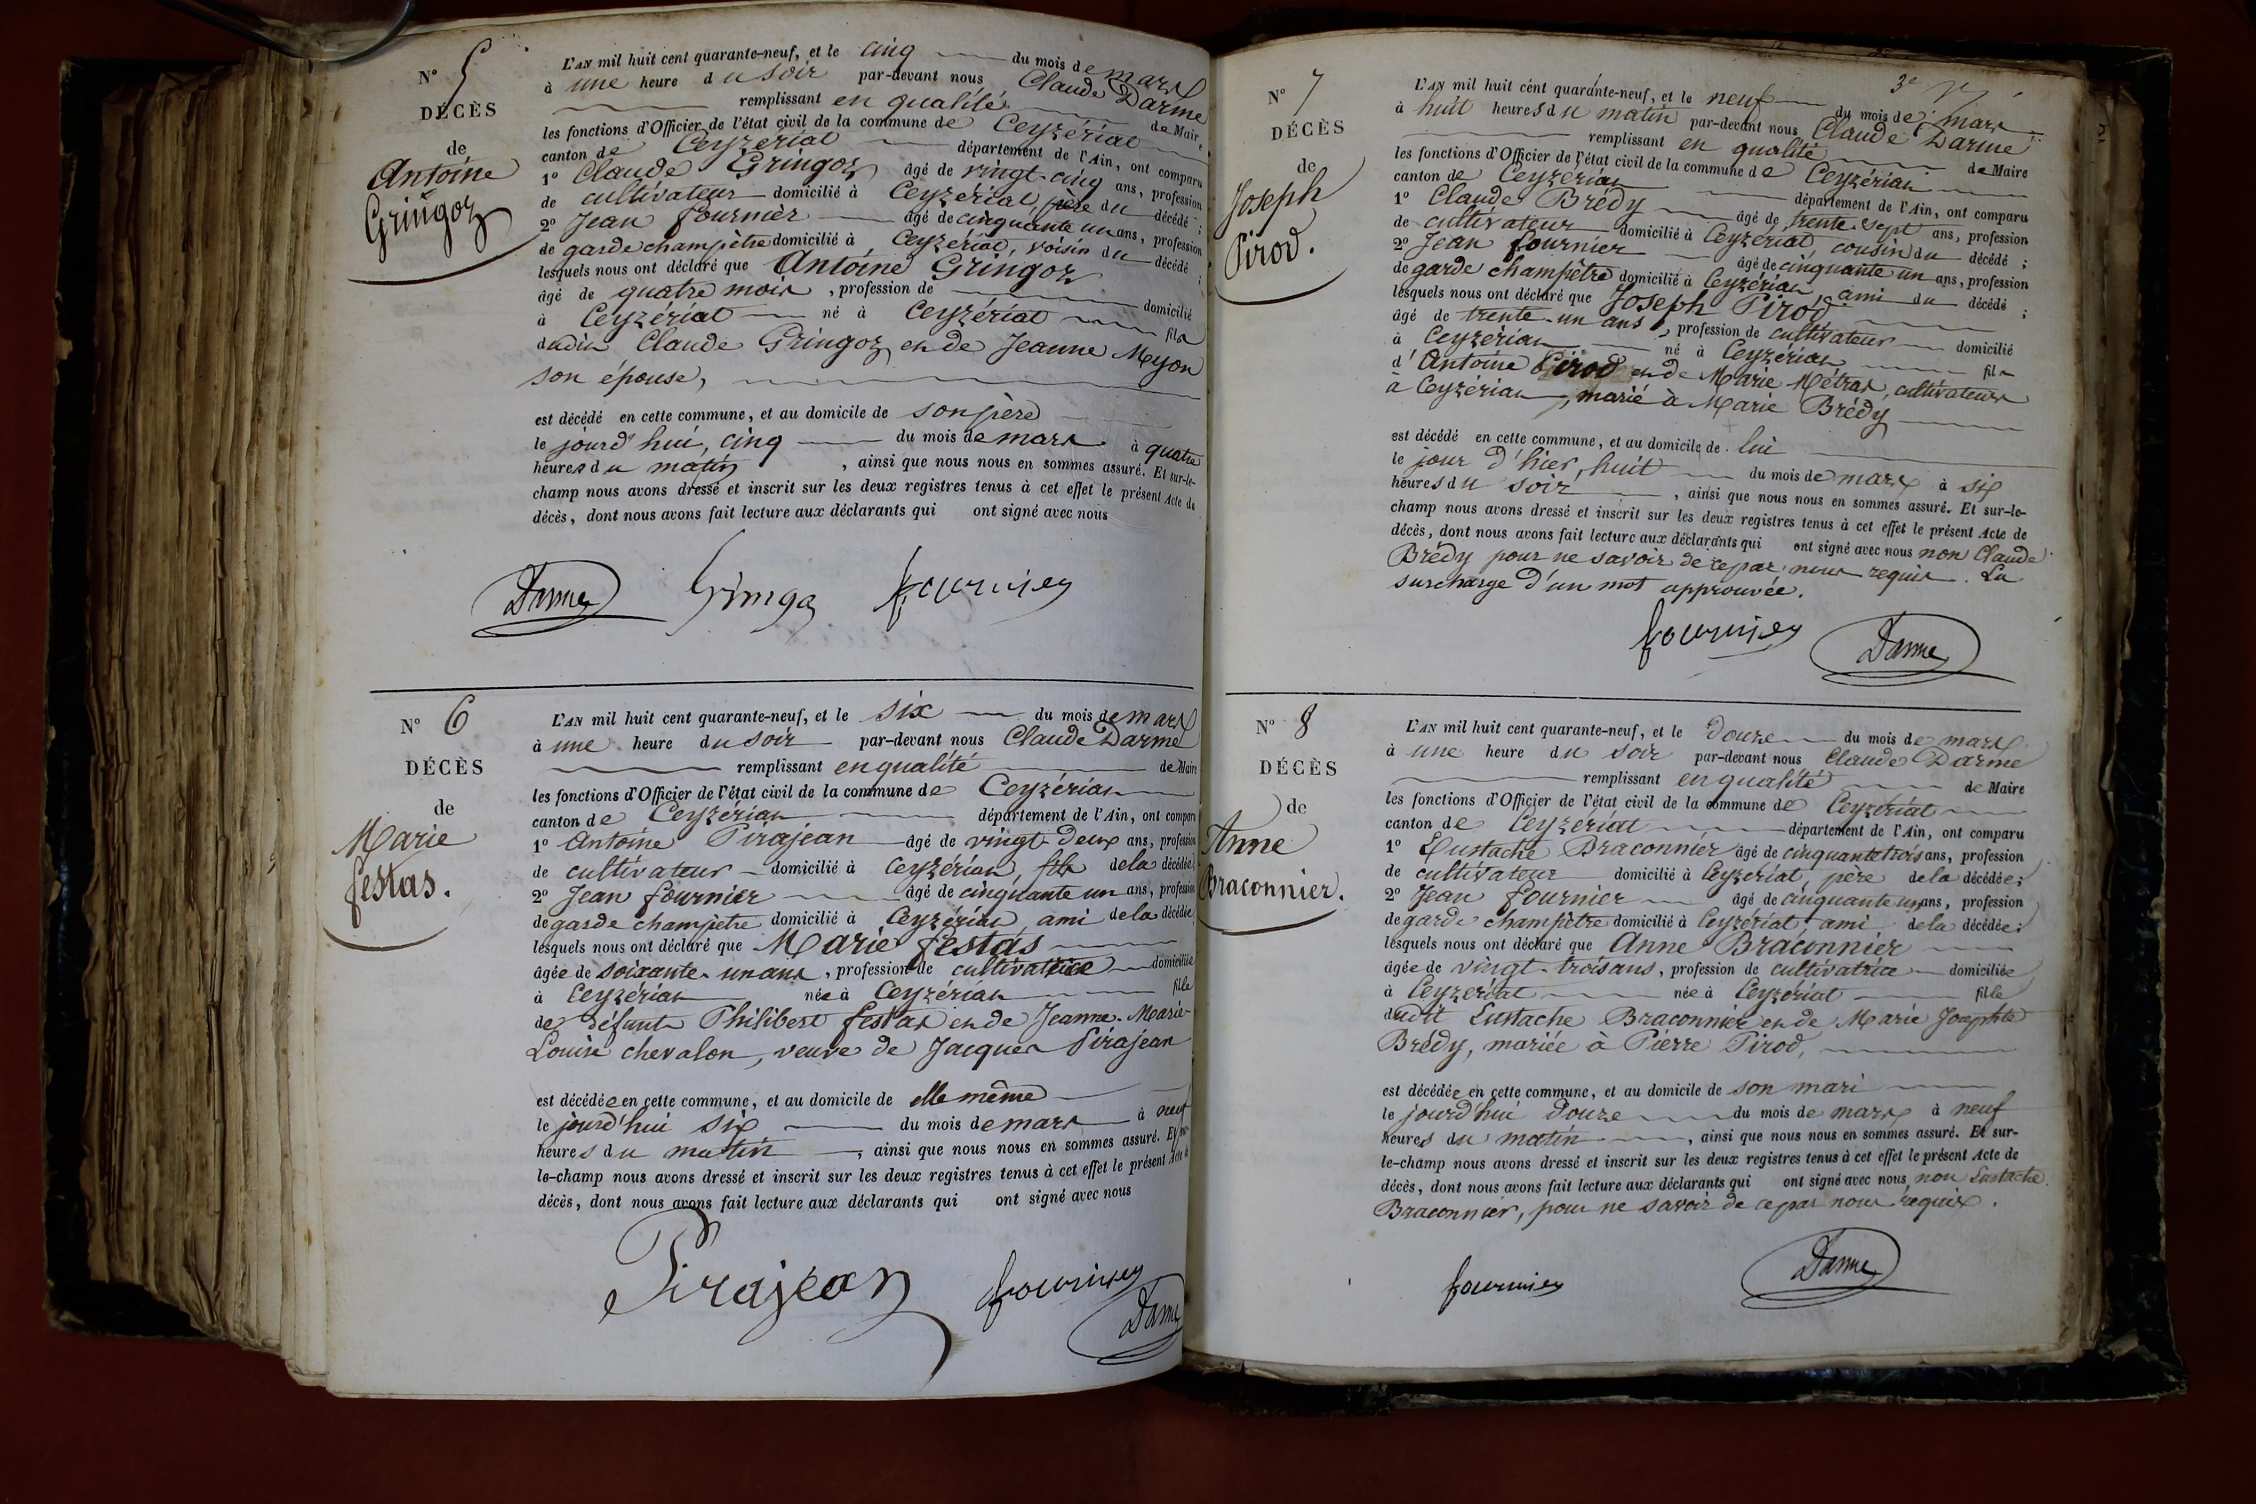 N° 5
DÉCÈS
de
Antoine
Gringoz
L'AN mil huit cent quarante-neuf, et le cinq du mois de mars
à une heure du soir par-devant nous Claude Darme
remplissant en qualité de Maire
les fonctions d'Officier de l'état civil de la commune de Ceyzériat
canton de Ceyzériat département de l'Ain, ont comparu
1° Claude Gringoz âgé de vingt-cinq ans, profession
de cultivateur domicilié à Ceyzériat, père du décédé ;
2° Jean fournier âgé de cinquante un ans, profession
de garde champêtre domicilié à Ceyzériat, voisin du décédé ;
lesquels nous ont déclaré que Antoine Gringoz
âgé de quatre mois, profession de domicilié
à Ceyzériat né à Ceyzériat fils
dudit Claude Gringoz et de Jeanne Myon
son épouse,
est décédé en cette commune, et au domicile de son père
le jourd'hui, cinq du mois de mars à quatre
heures du matin, ainsi que nous nous en sommes assuré. Et sur-le-
champ nous avons dressé et inscrit sur les deux registres tenus à cet effet le présent Acte de
décès, dont nous avons fait lecture aux déclarants qui ont signé avec nous
Darme Gringoz fournier
N° 6
DÉCÈS
de
Marie
festas.
L'AN mil huit cent quarante-neuf, et le six du mois de mars
à une heure du soir par-devant nous Claude Darme
remplissant en qualité de Maire
les fonctions d'Officier de l'état civil de la commune de Ceyzériat
canton de Ceyzériat département de l'Ain, ont comparu
1° Antoine Pirajean âgé de vingt-deux ans, profession
de cultivateur domicilié à Ceyzériat, fils de la décédée ;
2° Jean fournier âgé de cinquante un ans, profession
de garde champêtre domicilié à Ceyzériat, ami de la décédée ;
lesquels nous ont déclaré que Marie festas
âgée de soixante-un ans, profession de cultivatrice domiciliée
à Ceyzériat née à Ceyzériat fille
de défunts Philibert festas et de Jeanne-Marie-
Louise chevalon, veuve de Jacques Pirajean
est décédée en cette commune, et au domicile de elle même
le jourd'hui six du mois de mars à neuf
heures du matin, ainsi que nous nous en sommes assuré. Et sur-
le-champ nous avons dressé et inscrit sur les deux registres tenus à cet effet le présent Acte de
décès, dont nous avons fait lecture aux déclarants qui ont signé avec nous
Pirajean fournier
Darme
3e
N° 7
DÉCÈS
de
Joseph
Pirod.
L'AN mil huit cent quarante-neuf, et le neuf du mois de mars
à huit heures du matin par-devant nous Claude Darme
remplissant en qualité de Maire
les fonctions d'Officier de l'état civil de la commune de Ceyzériat
canton de Ceyzériat département de l'Ain, ont comparu
1° Claude Brédy âgé de trente-sept ans, profession
de cultivateur domicilié à Ceyzériat cousin du décédé ;
2° Jean fournier âgé de cinquante un ans, profession
de garde champêtre domicilié à Ceyzériat, ami du décédé ;
lesquels nous ont déclaré que Joseph Pirod
âgé de trente-un ans, profession de cultivateur domicilié
à Ceyzériat né à Ceyzériat fils
d'Antoine Pirod et de Marie Métras, cultivateurs
à Ceyzériat, marié à Marie Brédy
est décédé en cette commune, et au domicile de lui
le jour d'hier, huit du mois de mars à six
heures du soir, ainsi que nous nous en sommes assuré. Et sur-le-
champ nous avons dressé et inscrit sur les deux registres tenus à cet effet le présent Acte de
décès, dont nous avons fait lecture aux déclarants qui ont signé avec nous non Claude
Brédy pour ne savoir de ce par nous requis. La
surcharge d'un mot approuvée.
fournier Darme
N° 8
DÉCÈS
de
Anne
Braconnier.
L'AN mil huit cent quarante-neuf, et le douze du mois de mars
à une heure du soir par-devant nous Claude Darme
remplissant en qualité de Maire
les fonctions d'Officier de l'état civil de la commune de Ceyzériat
canton de Ceyzériat département de l'Ain, ont comparu
1° Eustache Braconnier âgé de cinquante trois ans, profession
de cultivateur domicilié à Ceyzériat, père de la décédée ;
2° Jean fournier âgé de cinquante un ans, profession
de garde champêtre domicilié à Ceyzériat, ami de la décédée ;
lesquels nous ont déclaré que Anne Braconnier
âgée de vingt-trois ans, profession de cultivatrice domiciliée
à Ceyzériat née à Ceyzériat fille
dudit Eustache Braconnier et de Marie Josephte
Brédy, mariée à Pierre Pirod,
est décédée en cette commune, et au domicile de son mari
le jourd'hui douze du mois de mars à neuf
heures du matin, ainsi que nous nous en sommes assuré. Et sur-
le-champ nous avons dressé et inscrit sur les deux registres tenus à cet effet le présent Acte de
décès, dont nous avons fait lecture aux déclarants qui ont signé avec nous non Eustache
Braconnier, pour ne savoir de ce par nous requis.
fournier Darme